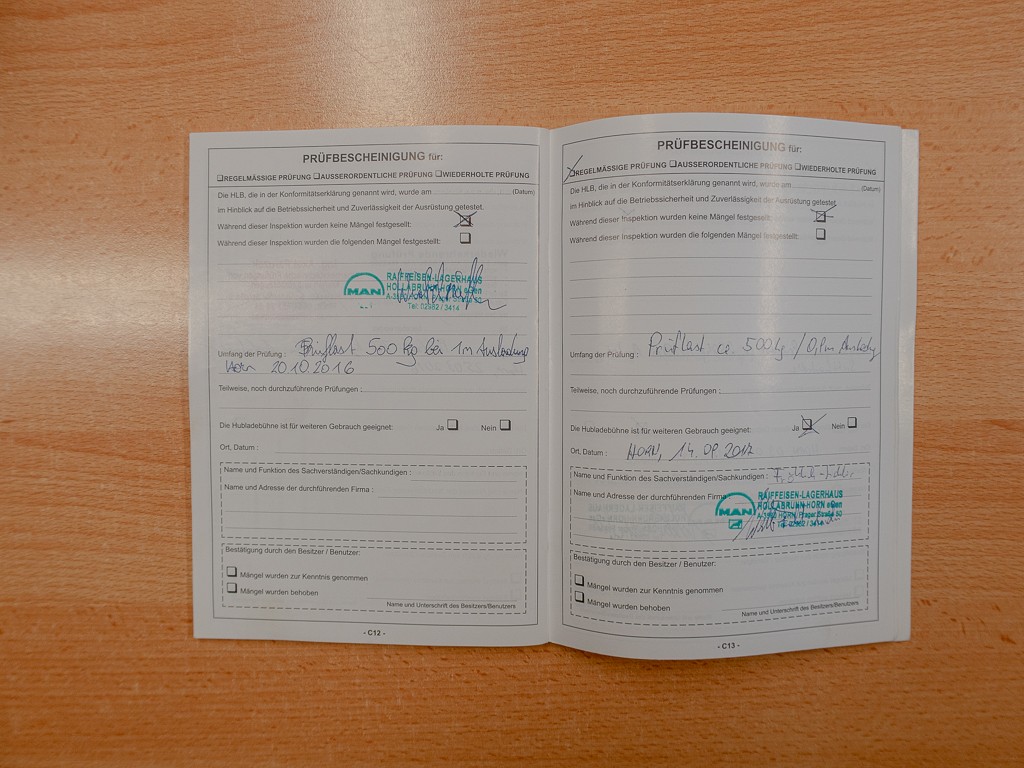 PRÜFBESCHEINIGUNG für:
❑REGELMÄSSIGE PRÜFUNG ❑AUSSERORDENTLICHE PRÜFUNG ❑WIEDERHOLTE PRÜFUNG
Die HLB, die in der Konformitätserklärung genannt wird, wurde am (Datum)
im Hinblick auf die Betriebssicherheit und Zuverlässigkeit der Ausrüstung getestet.
Während dieser Inspektion wurden keine Mängel festgestellt:
Während dieser Inspektion wurden die folgenden Mängel festgestellt:
RAIFFEISEN-LAGERHAUS
MAN HOLLABRUNN-HORN eGen
Tel. 02982 / 3414
Umfang der Prüfung : Prüflast 500 kg bei 1m Ausladung
Horn 20.10.2016
Teilweise, noch durchzuführende Prüfungen :
Die Hubladebühne ist für weiteren Gebrauch geeignet: Ja Nein
Ort, Datum :
Name und Funktion des Sachverständigen/Sachkundigen :
Name und Adresse der durchführenden Firma :
Bestätigung durch den Besitzer / Benutzer:
Mängel wurden zur Kenntnis genommen
Mängel wurden behoben
Name und Unterschrift des Besitzers/Benutzers
- C12 -
PRÜFBESCHEINIGUNG für:
❑REGELMÄSSIGE PRÜFUNG ❑AUSSERORDENTLICHE PRÜFUNG ❑WIEDERHOLTE PRÜFUNG
Die HLB, die in der Konformitätserklärung genannt wird, wurde am (Datum)
im Hinblick auf die Betriebssicherheit und Zuverlässigkeit der Ausrüstung getestet.
Während dieser Inspektion wurden keine Mängel festgestellt:
Während dieser Inspektion wurden die folgenden Mängel festgestellt:
Umfang der Prüfung : Prüflast ca. 500 kg /
Teilweise, noch durchzuführende Prüfungen :
Die Hubladebühne ist für weiteren Gebrauch geeignet: Ja Nein
Ort, Datum : HORN, 14.09.2017
Name und Funktion des Sachverständigen/Sachkundigen :
Name und Adresse der durchführenden Firma
RAIFFEISEN-LAGERHAUS
MAN HOLLABRUNN-HORN eGen
A-3580 HORN, Prager Straße 50
Tel. 02982 / 3414
Bestätigung durch den Besitzer / Benutzer:
Mängel wurden zur Kenntnis genommen
Mängel wurden behoben
Name und Unterschrift des Besitzers/Benutzers
- C13 -